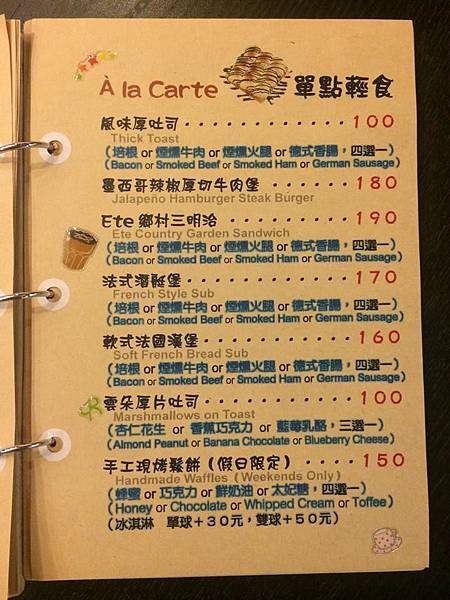 À la Carte 單點輕食
風味厚吐司············100
Thick Toast
（培根 or 煙燻牛肉 or 煙燻火腿 or 德式香腸，四選一）
(Bacon or Smoked Beef or Smoked Ham or German Sausage)
墨西哥辣椒厚切牛肉堡·······180
Jalapeño Hamburger Steak Burger
Ete 鄉村三明治··········190
Ete Country Garden Sandwich
（培根 or 煙燻牛肉 or 煙燻火腿 or 德式香腸，四選一）
(Bacon or Smoked Beef or Smoked Ham or German Sausage)
法式潛艇堡············170
French Style Sub
（培根 or 煙燻牛肉 or 煙燻火腿 or 德式香腸，四選一）
(Bacon or Smoked Beef or Smoked Ham or German Sausage)
軟式法國漢堡···········160
Soft French Bread Sub
（培根 or 煙燻牛肉 or 煙燻火腿 or 德式香腸，四選一）
(Bacon or Smoked Beef or Smoked Ham or German Sausage)
雲朵厚片吐司···········100
Marshmallows on Toast
（杏仁花生 or 香蕉巧克力 or 藍莓乳酪，三選一）
(Almond Peanut or Banana Chocolate or Blueberry Cheese)
手工現烤鬆餅（假日限定）····150
Handmade Waffles (Weekends Only)
（蜂蜜 or 巧克力 or 鮮奶油 or 太妃糖，四選一）
(Honey or Chocolate or Whipped Cream or Toffee)
（冰淇淋 單球＋30元，雙球＋50元）